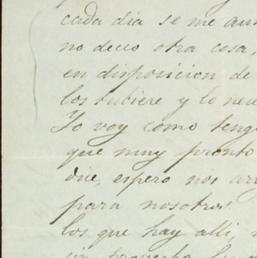 cada dia se me au
no deceo otra cosa,
en disposicion de
los tubiere y lo nec
Yo voy como teng
que muy pronto
due, espero nos ar
para nosotros
los que hay alli,